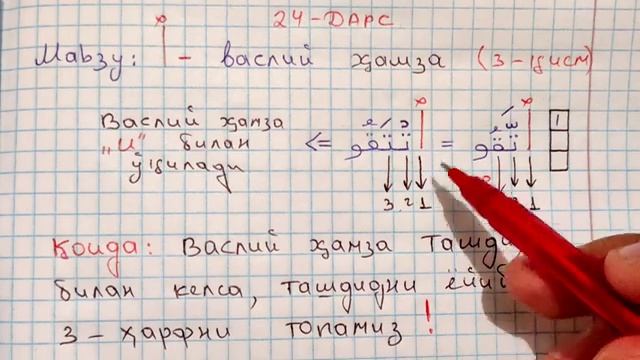 24-ДАРС
Мавзу: ٱ - васлий ҳамза (3-қисм)
Васлий ҳамза
"И" билан
ўқилади
<= ٱتْتَقُو = ٱتَّقُو
3 2 1
1
Қоида: Васлий ҳамза
билан келса, ташдидни
3-ҳарфни топамиз!